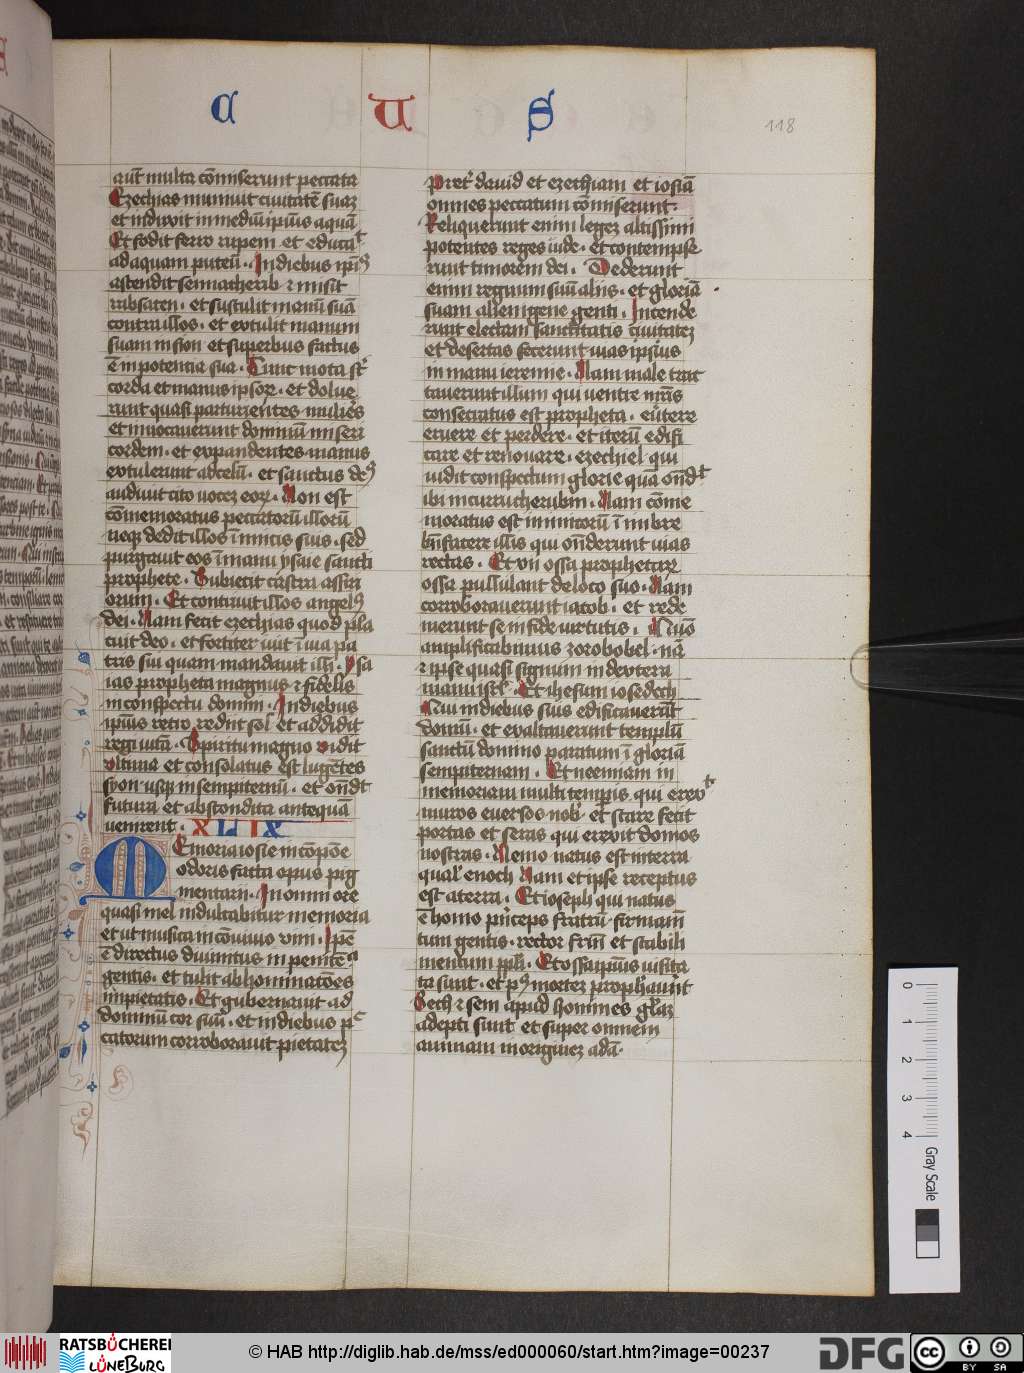 C U S
118
aut̃ multa cõmiserunt peccata
Ezechias muniuit ciuitatẽ suaz
et induxit in mediũ ipsius aquã
Et fodit ferro rupem et edificaᵗ
ad aquam puteũ . In diebus ipiꝰ
ascendit sennacherib ⁊ misit
rabsacen . et sustulit manũ suã
contra illos . et extulit manum
suam in sion et superbus factus
ẽ in potencia sua . Tunc mota st̃
corda et manus ipsoꝝ . et dolue
runt quasi parturientes mulieͬs
et inuocauerunt dominũ miseri
cordem . et expandentes manus
extulerunt ad celũ . et sanctus deꝰ
audiuit cito vocez eoꝝ . Non est
cõmemoratus peccatorũ illorũ
neqꝫ dedit illos ĩ inimicis suis . sed
purgauit eos ĩ manu ysaie sancti
prophete . Subiecit castra assiri
orum . Et contriuit illos angelꝰ
dei . Nam fecit ezechias quod pla
cuit deo . et fortiter iuit ĩ uia pa
tris sui quam mandauit illi . ysa
ias propheta magnus ⁊ fidelis
in conspectu domini . In diebus
ipsius retro rediit sol et addidit
regi uitã . Spiritu magno vidit
vltima et consolatus est lugẽtes
syon usqꝫ in sempiternũ . et oñdᵗ
futura et abscondita antequã
uenirent . XLIX
Memoria iosie in cõpõe
odoris facta opus pig
mentarii . In omni ore
quasi mel indulcabitur memoria
et ut musica in cõuiuio vini . Ipẽ
ẽ directus diuinitus in peniteᵃ̃
gentis . et tulit abhominatões
impietatis . Et gubernauit ad
dominũ cor suũ . et in diebus pᶜ
catorum corroborauit pietatez
Preteͬ dauid et ezechiam et iosiã
omnes peccatum cõmiserunt .
Reliquerunt enim legez altissimi
potentes reges iude . et contempse
runt timorem dei . Dederunt
enim regnum suũ aliis . et gloriã
suam alienigene genti . Incende
runt electam sanctitatis ciuitatez
et desertas fecerunt uias ipsius
in manu ieremie . Nam male trac
tauerunt illum qui uentre mr̃is
consecratus est propheta . euͬtere
eruere et perdere . et iterũ edifi
care et renouare . ezechiel qui
uidit conspectum glorie quã oñdᵗ
ibi in curru cherubim . Nam cõme
moratus est inimicorũ ĩ imbre
bñfacere illis qui oñderunt uias
rectas . Et xii ossa prophetaꝝ
ossa pullulant de loco suo . Nam
corroborauerunt iacob . et rede
merunt se in fide uirtutis . Quõ
amplificabimus zorobobel . nã
⁊ ipse quasi signum in dextera
manu isrl̃ . Et ihesum iosedech
Qui in diebus suis edificauerũt
domũ . et exaltauerunt templũ
sanctũ domino paratum ĩ gloriã
sempiternam . Et neemiam in
memoriam multi tempis qui erexᵗ
muros euersos nobͥ et stare fecit
portas et seras qui erexit domos
nostras . Nemo natus est in terra
qualͥ enoch Nam et ipse receptus
est a terra . Et ioseph qui natus
ẽ homo pͥnceps fratrũ firmam̃
tum gentis . rector frm̃ et stabili
mentum ppl̃i . Et ossa ipsius uisita
ta sunt . et pꝰ mortez prophauͬnt
Seth ⁊ sem apud homines gl̃az
adepti sunt et super omnem
animam in originez adã .
0 1 2 3 4
Gray Scale
RATSBÜCHEREI
LÜNEBURG
© HAB http://diglib.hab.de/mss/ed000060/start.htm?image=00237
DFG
cc BY SA